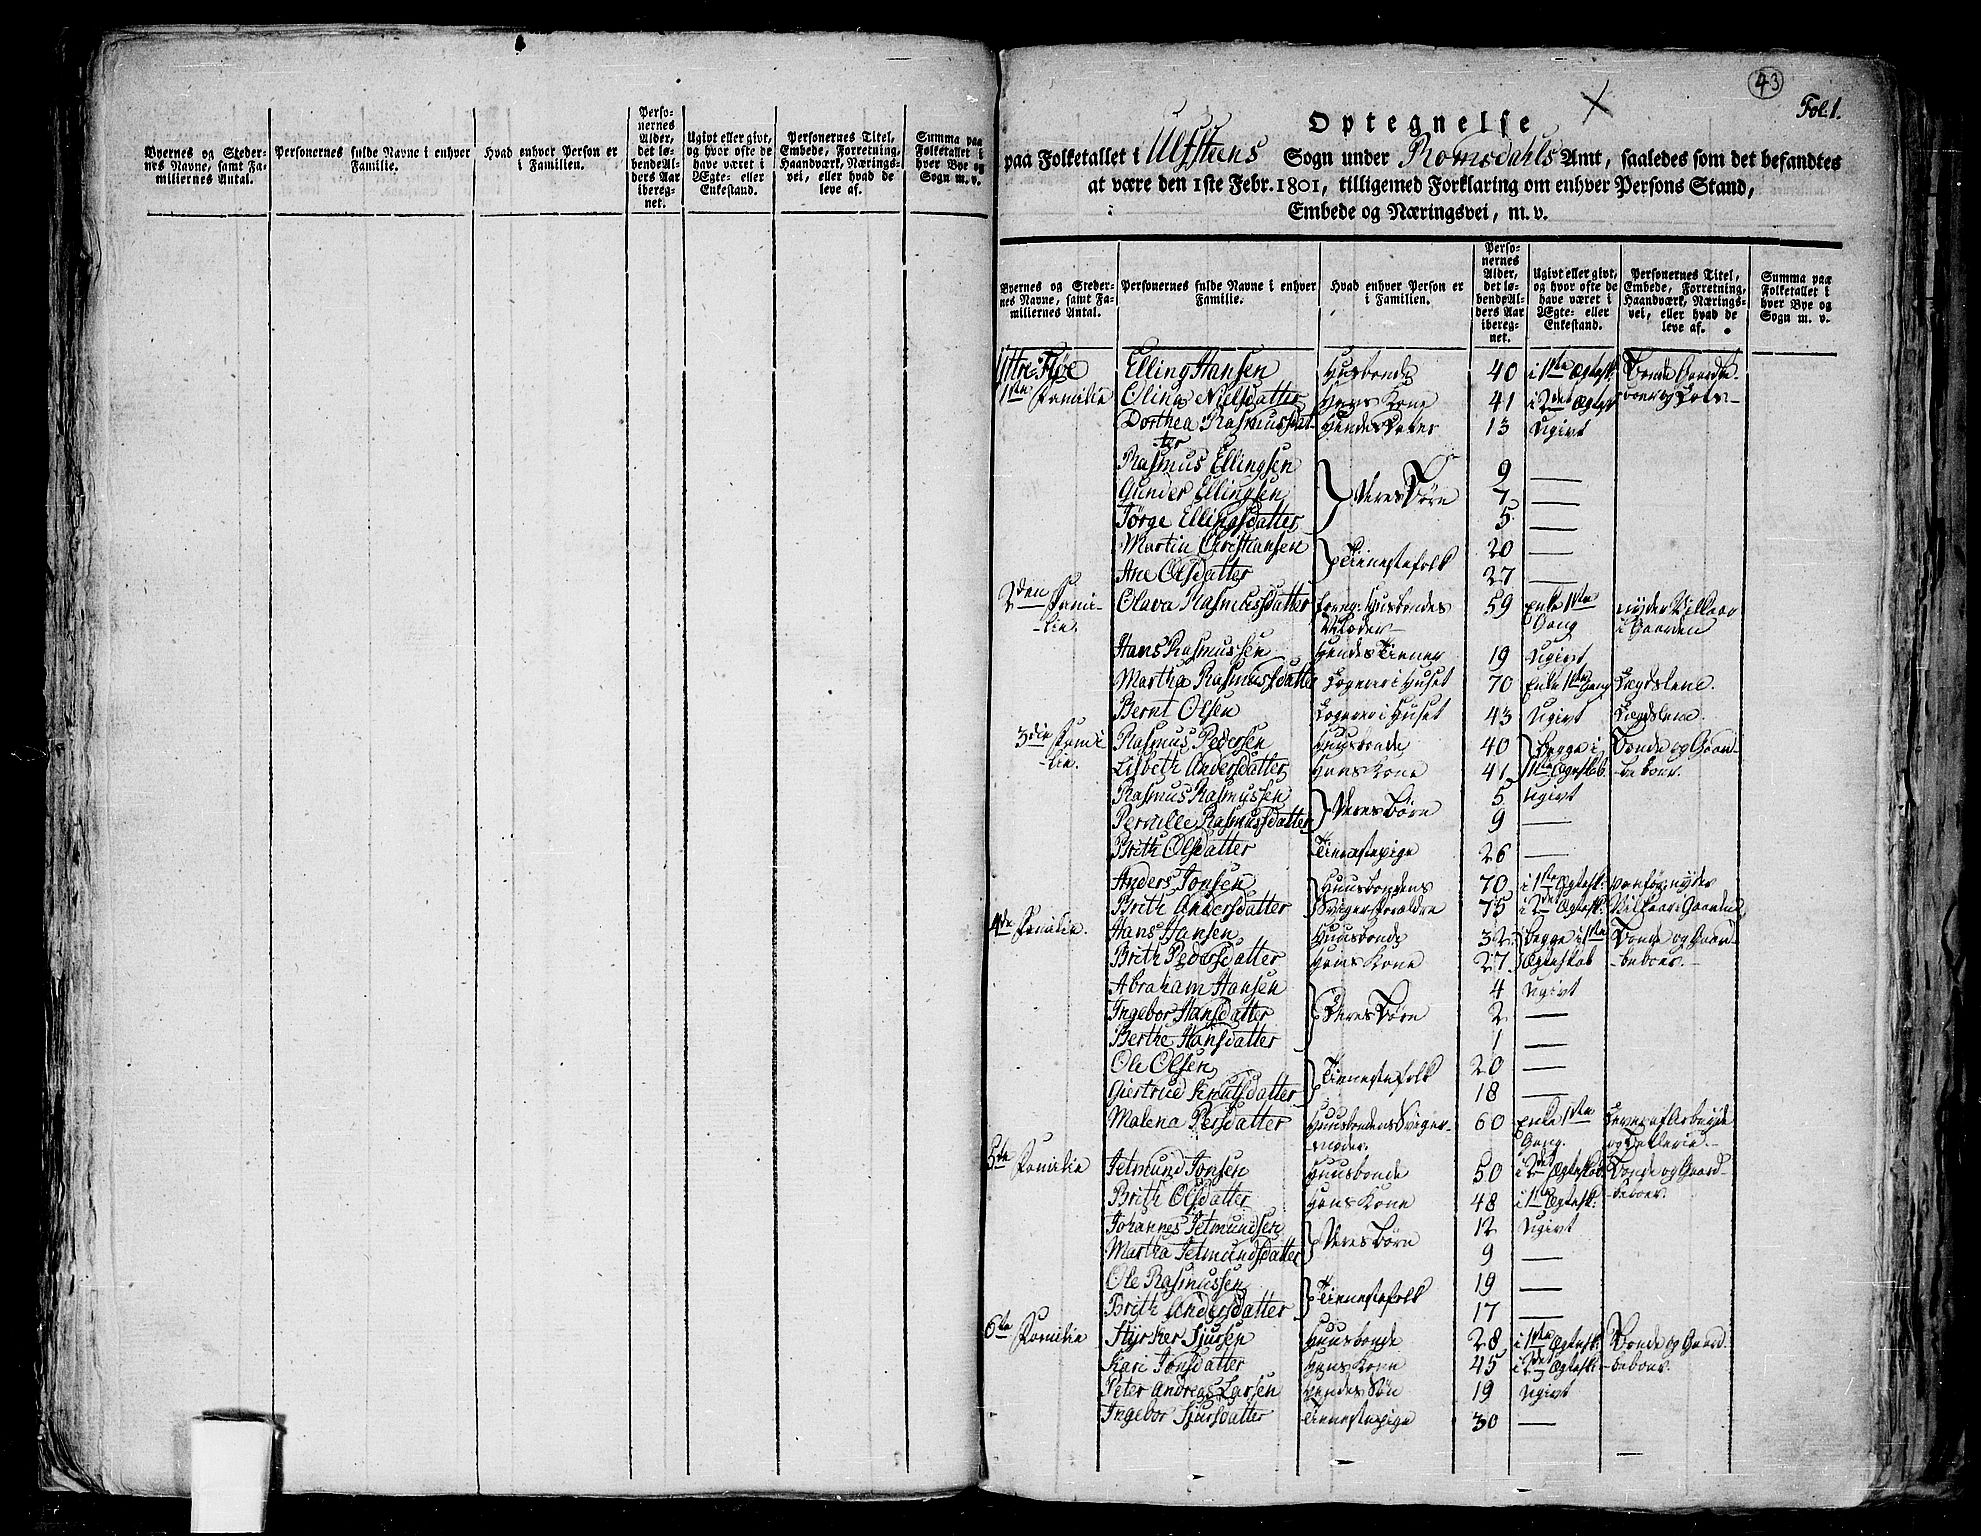 Byernes og Steder-
nes Navne, samt Fa-
miliernes Antal.
Personernes fulde Navne i enhver
Familie.
Hvad enhver Person er
i Familien.
Perso-
nernes
Alder,
det lø-
bende Al-
ders Aar
iberegnet.
Ugivt eller givt,
og hvor ofte de
have været i
Ægte- eller
Enkestand.
Personernes Titel,
Embede, Forretning,
Haandværk, Nærings-
vei, eller hvad de
leve af.
Summa paa
Folketallet i
hver Bye og
Sogn m. v.
43
Fol. 1.
Optegnelse
paa Folketallet i Ulfsteens Sogn under Romsdahls Amt, saaledes som det befandtes
at være den 1ste Febr. 1801, tilligemed Forklaring om enhver Persons Stand,
Embede og Næringsvei, m. v.
Byernes og Steder-
nes Navne, samt Fa-
miliernes Antal.
Personernes fulde Navne i enhver
Familie.
Hvad enhver Person er
i Familien.
Perso-
nernes
Alder,
det lø-
bende Al-
ders Aar
iberegnet.
Ugivt eller givt,
og hvor ofte de
have været i
Ægte- eller
Enkestand.
Personernes Titel,
Embede, Forretning,
Haandværk, Nærings-
vei, eller hvad de
leve af.
Summa paa
Folketallet i
hver Bye og
Sogn m. v.
Yttre Fløe Elling Hansen Huusbonde 40 i 1ste Ægtesk. Bonde Gaardbe-
1ste Familie Olina Nielsdatter Hans Kone 41 i 2det Ægtesk.
Dorthea Rasmusdat- Hendes Datter 13 Ugivt
ter
Rasmus Ellingsen 9 —
Gunder Ellingsen Deres Børn 7 —
Jørge Ellingsdatter 5 —
Martin Christiansen 20 —
Tienestefolk
Ane Olsdatter 27 —
2den Fami- Olava Rasmusdatter Huusbondes 59 Enke 1ste nyder Vilkaar
lie. Moder Gang i Gaarden
Hans Rasmussen Hendes Tiener 19 Ugivt
Martha Rasmusdatter Logerer i Huset 70 Enke 1ste Gang Lægdslem.
Bernt Olsen Logerer i Huset 43 Ugivt Lægdslem.
3die Fami- Rasmus Pedersen Huusbonde 40 begge i Bonde og Gaard-
lie. Lisbeth Andersdatter Hans Kone 41 1ste Ægteskab. beboer.
Rasmus Rasmussen 5 Ugivt
Deres Børn
Pernille Rasmusdatter 9 —
Brith Olsdatter Tienestepige 26 —
Anders Jonsen Huusbondens 70 i 1ste Ægtesk: vanfør, nyder
Brith Andersdatter Svigerforældre 75 i 2det Ægtesk: Vilkaar i Gaarden
4de Familie. Hans Hansen Huusbonde 32 begge i 1ste Bonde og Gaard-
Brith Pedersdatter Hans Kone 27 Ægteskab beboer.
Abraham Hansen 4 Ugivt
Ingebor Hansdatter Deres Børn 2 —
Berthe Hansdatter 1 —
Ole Olsen 20 —
Tienestefolk
Giertrud Knutsdatter 18 —
Malena Persdatter Huusbondens Sviger- 60 Enke 1ste Lever af Arbeyde
moder. Gang.
5te Familie Jetmund Jonsen Huusbonde 50 i 2det Ægteskab Bonde og Gaard-
Brith Olsdatter Hans Kone 48 i 1ste Ægtesk: beboer.
Johannes Jetmundsen 12 Ugivt
Deres Børn
Martha Jetmundsdatter 9 —
Ole Rasmussen 19 —
Tienestefolk
Brith Andersdatter 17 —
6te Familie Styrker Sjursen Huusbonde 28 i 1ste Ægtesk: Bonde og Gaard-
Kari Jonsdatter Hans Kone 45 i 2det Ægtesk: beboer.
Peter Andreas Larsen Hendes Søn 19 Ugivt
Ingebor Sjursdatter Tienestepige 30 —